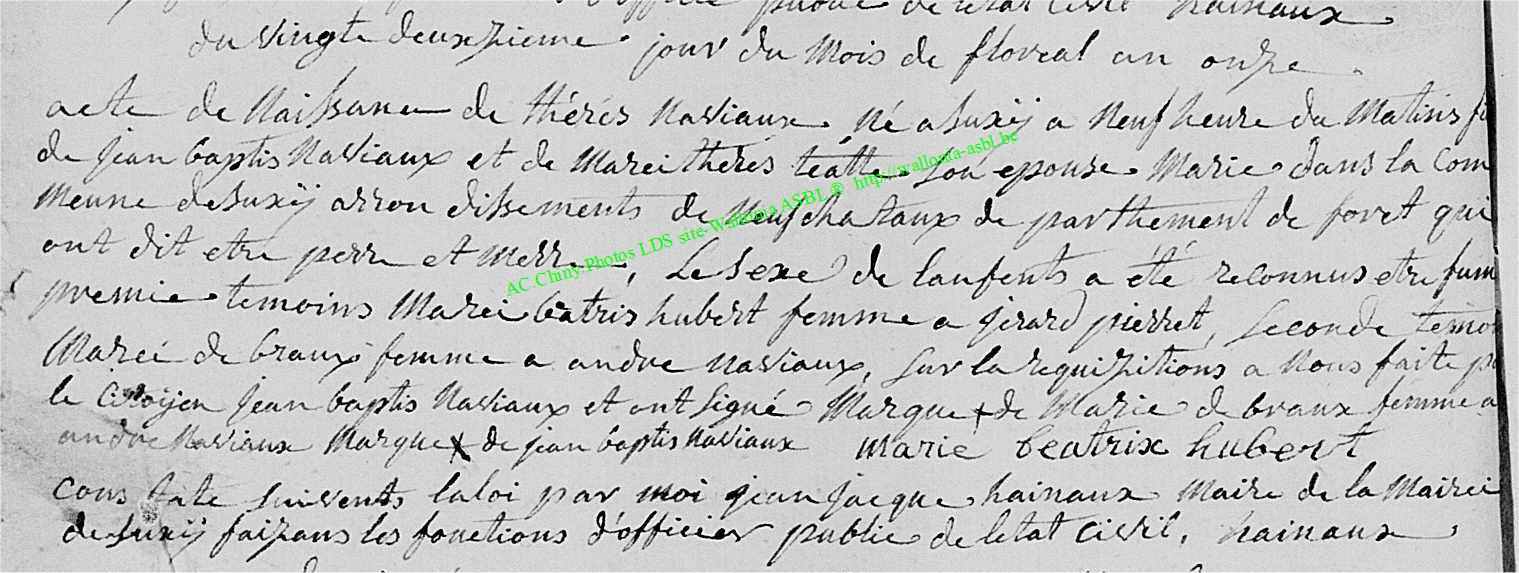 d'office publie de letat civil hainaux
du vingte deuxzieme jour du mois de floreal an onze
acte de Naissance de thérés Naviaux Né a Suxÿ a Neuf heure du Matins fi
de jean baptis Naviaux et de Marei thérés teatte Son epouse Marie dans la Com
meune de Suxÿ arron dissements de Neufchataux de parthement de foret qui
ont dit etre perre et Merre, Le Sexe de laufents a été reconnus etre fum
premie temoins Marei beatris hubert femme a jerard pierret, Seconde temoi
Mareé de braux femme a andre Naviaux, Sur la requizitions a Nous faite pa
le Citoÿen jean baptis Naviaux et ont Signé Marque + de Marie de braux femme a
andre Naviaux Marque X de jean baptis Naviaux Marie beatrix hubert
Cons tate Suivents laloi par moi jean jacque hainaux Maire de la Mairei
de Suxÿ faizans les fonctions d'officier public de letat Civil, hainaux
AC Chiny-Photos LDS site-Wallonia ASBL ® http://wallonia-asbl.be